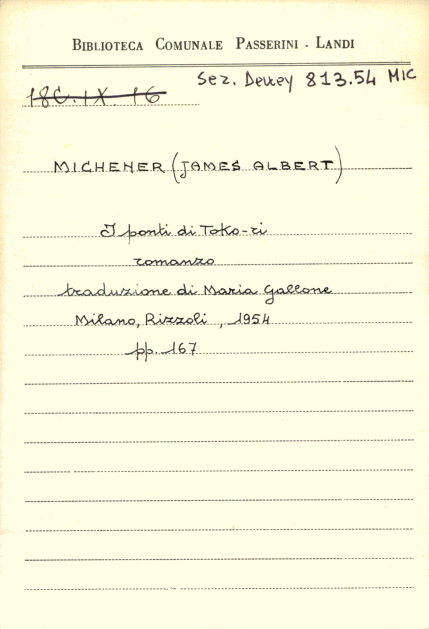 BIBLIOTECA COMUNALE PASSERINI - LANDI
Sez. Dewey 813.54 MIC
18C.IX.16
MICHENER (JAMES ALBERT)
I ponti di Toko-ri
romanzo
traduzione di Maria Gallone
Milano, Rizzoli, 1954
pp. 167